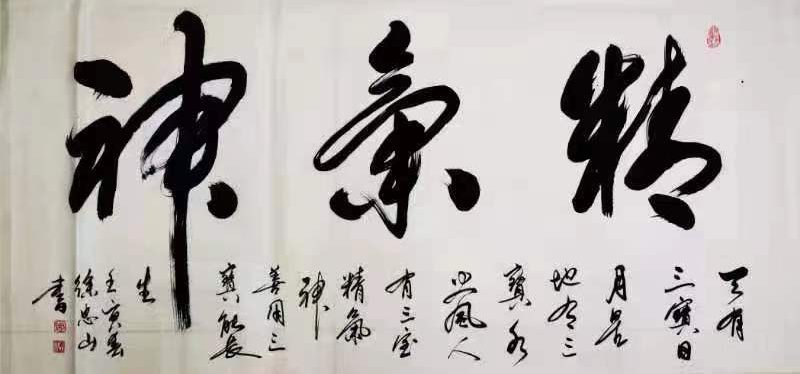 精氣神
天有
三寶日
月星
地有三
寶水
火風人
有三宝
精氣
神
善用三
寶能長
生
壬寅春
徐忠山
書